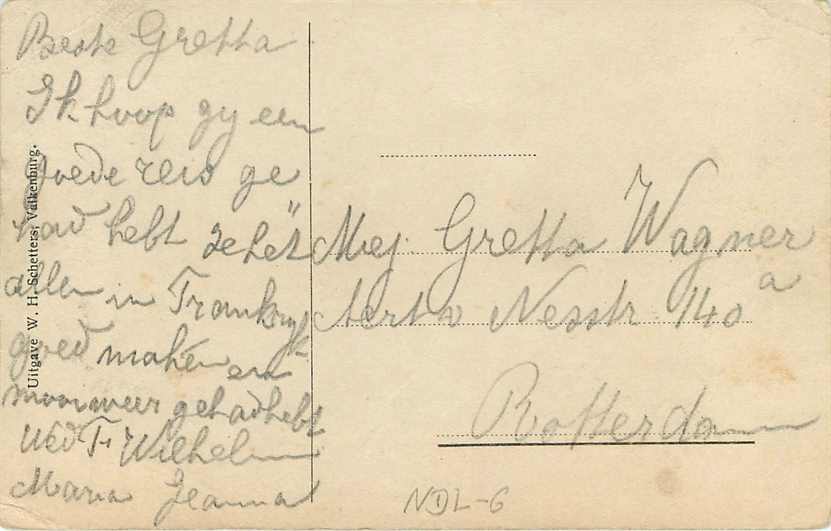 Beste Gretta
Ik hoop gy een
goede reis ge
had hebt je het
allen in Frankryk
goed maken en
mooi weer gehad hebt
Wed Fr Wilhelm
Maria Jeanna
Uitgave W. H. Schetters, Valkenburg.
Mej. Gretta Wagner
Aert v Nesstr 140 a
Rotterdam
NDL-6